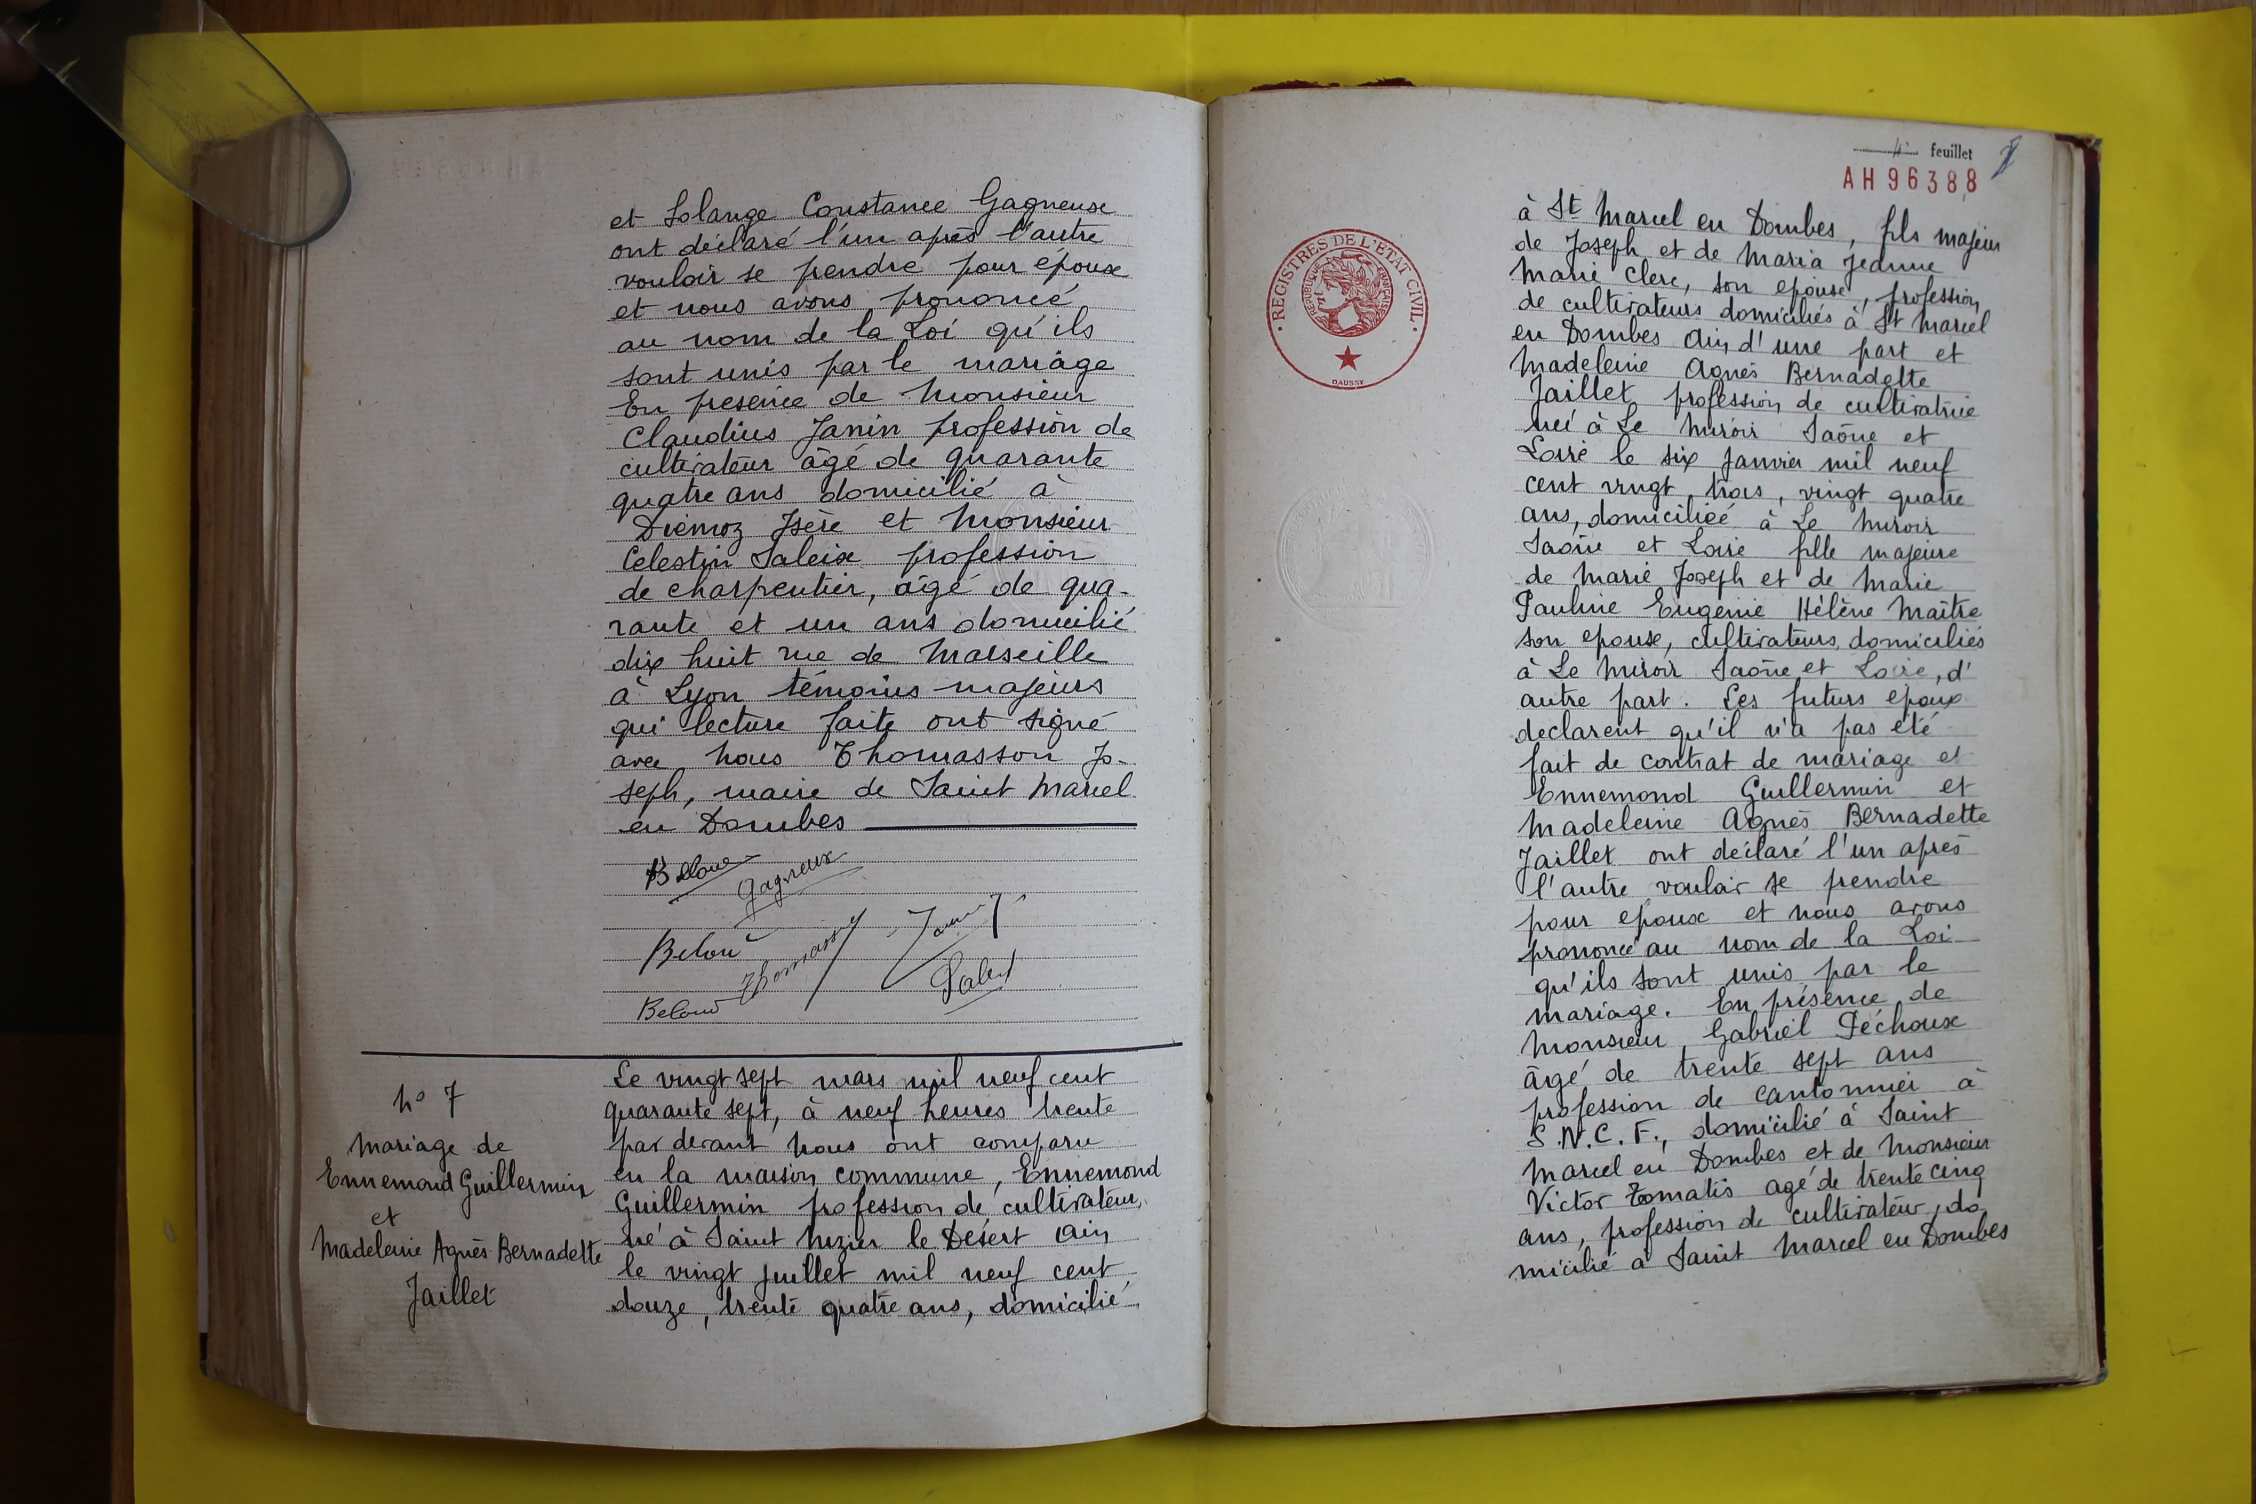 et Solange Constance Gagneuse
ont déclaré l'un après l'autre
vouloir se prendre pour epoux
et nous avons prononcé
au nom de la Loi qu'ils
sont unis par le mariage
En presence de Monsieur
Claudius Janin profession de
cultivateur âgé de quarante
quatre ans domicilié à
Diémoz Isère et Monsieur
Celestin Saleix profession
de charpentier, âgé de qua-
rante et un ans domicilié
dix huit rue de Marseille
à Lyon témoins majeurs
qui lecture faite ont signé
avec nous Thomasson Jo-
seph, maire de Saint Marcel
en Dombes
Gagneux
Thomasson
Janin
Belou
nº 7
Mariage de
Ennemond Guillermin
et
Madeleine Agnès Bernadette
Jaillet
Le vingt sept mars mil neuf cent
quarante sept, à neuf heures trente
par devant nous ont comparu
en la maison commune, Ennemond
Guillermin profession de cultivateur,
né à Saint Nizier le Désert Ain
le vingt juillet mil neuf cent
douze, trente quatre ans, domicilié
feuillet
AH 96388
REGISTRES DE L'ETAT CIVIL
REPUBLIQUE FRANÇAISE
DAUSSY
à St Marcel en Dombes, fils majeur
de Joseph et de Maria Jeanne
Marie Clerc, son epouse, profession
de cultivateurs domiciliés à St Marcel
en Dombes Ain d'une part et
Madeleine Agnès Bernadette
Jaillet profession de cultivatrice
née à Le Miroir Saône et
Loire le six Janvier mil neuf
cent vingt trois, vingt quatre
ans, domiciliée à Le Miroir
Saône et Loire fille majeure
de Marie Joseph et de Marie
Pauline Eugénie Hélène Maître
son epouse, cultivateurs domiciliés
à Le Miroir Saône et Loire, d'
autre part. Les futurs epoux
declarent qu'il n'a pas été
fait de contrat de mariage et
Ennemond Guillermin et
Madeleine Agnès Bernadette
Jaillet ont déclaré l'un après
l'autre vouloir se prendre
pour epoux et nous avons
prononcé au nom de la Loi
qu'ils sont unis par le
mariage. En présence de
Monsieur Gabriel Péchoux
âgé de trente sept ans
profession de cantonnier à
S.N.C.F., domicilié à Saint
Marcel en Dombes et de Monsieur
Victor Tomatis agé de trente cinq
ans, profession de cultivateur, do
micilié à Saint Marcel en Dombes